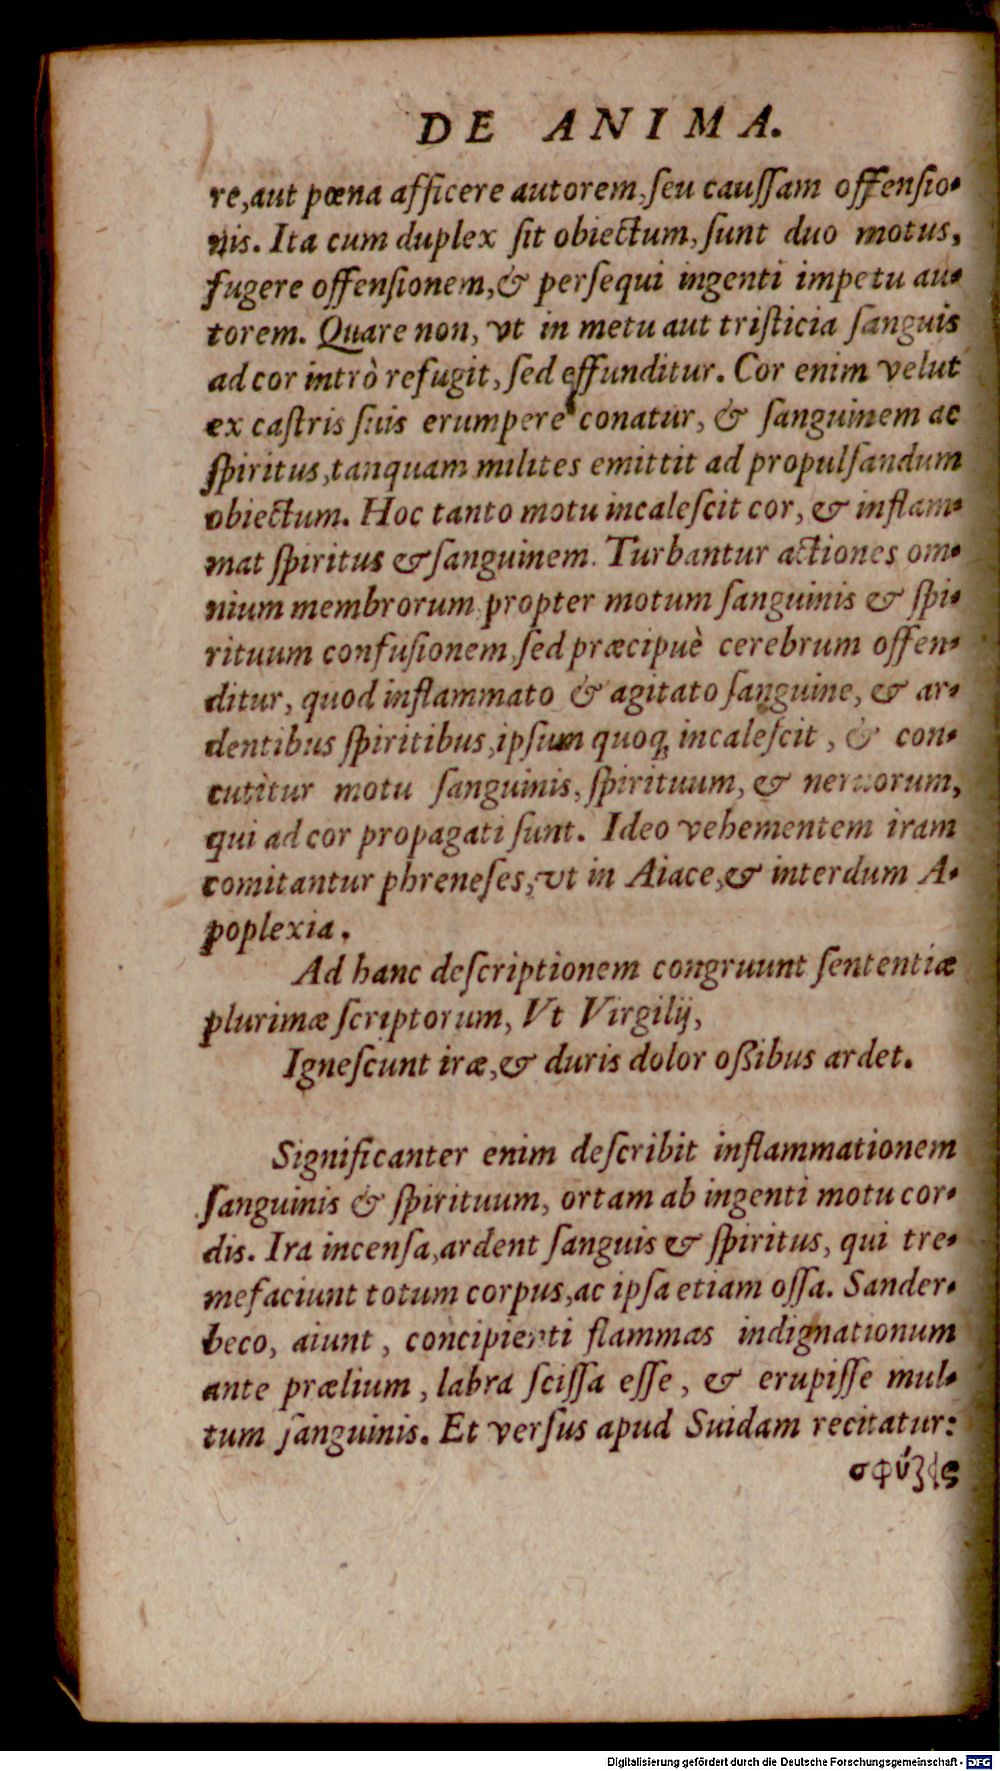 DE ANIMA.
re,aut pœna afficere autorem,ſeu cauſſam offenſio-
nis. Ita cum duplex ſit obiectum,ſunt duo motus,
fugere offenſionem,& perſequi ingenti impetu au-
torem. Quare non, vt in metu aut triſticia ſanguis
ad cor intrò refugit, ſed effunditur. Cor enim velut
ex caſtris ſuis erumpere conatur, & ſanguinem ac
ſpiritus,tanquam milites emittit ad propulſandum
obiectum. Hoc tanto motu incaleſcit cor, & inflam-
mat ſpiritus & ſanguinem. Turbantur actiones om-
nium membrorum propter motum ſanguinis & ſpi-
rituum confuſionem,ſed præcipuè cerebrum offen-
ditur, quod inflammato & agitato ſanguine, & ar-
dentibus ſpiritibus,ipſum quoq; incaleſcit, & con-
cutitur motu ſanguinis, ſpirituum, & neruorum,
qui ad cor propagati ſunt. Ideo vehementem iram
comitantur phreneſes, vt in Aiace,& interdum A-
poplexia.
Ad hanc deſcriptionem congruunt ſententiæ
plurimæ ſcriptorum, Vt Virgilij,
Igneſcunt iræ,& duris dolor oßibus ardet.
Significanter enim deſcribit inflammationem
ſanguinis & ſpirituum, ortam ab ingenti motu cor-
dis. Ira incenſa,ardent ſanguis & ſpiritus, qui tre-
mefaciunt totum corpus,ac ipſa etiam oſſa. Sander-
beco, aiunt, concipienti flammas indignationum
ante prælium, labra ſciſſa eſſe, & erupiſſe mul-
tum ſanguinis. Et verſus apud Suidam recitatur:
Digitalisierung gefördert durch die Deutsche Forschungsgemeinschaft - DFG